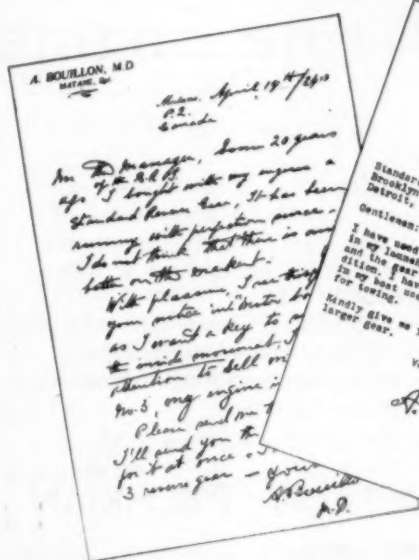 A. BOUILLON, M.D
MATANE, Que
Matane, April 19th/24
P.Q.
Canada
The Manager, Some 20 years
of the
ago, I bought with my engine a
Standard Reverse Gear, It has been
running with perfection since.
I do not think that there is one
better on the market.
With pleasure, I see
your notice in "Motor Bo
as I want a key to
the inside movement. I
intention to sell
No. 3, my engine i
Please send me t
I'll send you the
for it at once.
3 reverse gear — Your
A. Bouillon
M.D.
Standar
Brooklyn
Detroit,
Gentlemen:
I have used
in my launch
and the gear
dition. I hav
in my boat us
for towing.
Kindly give me
larger gear.
V